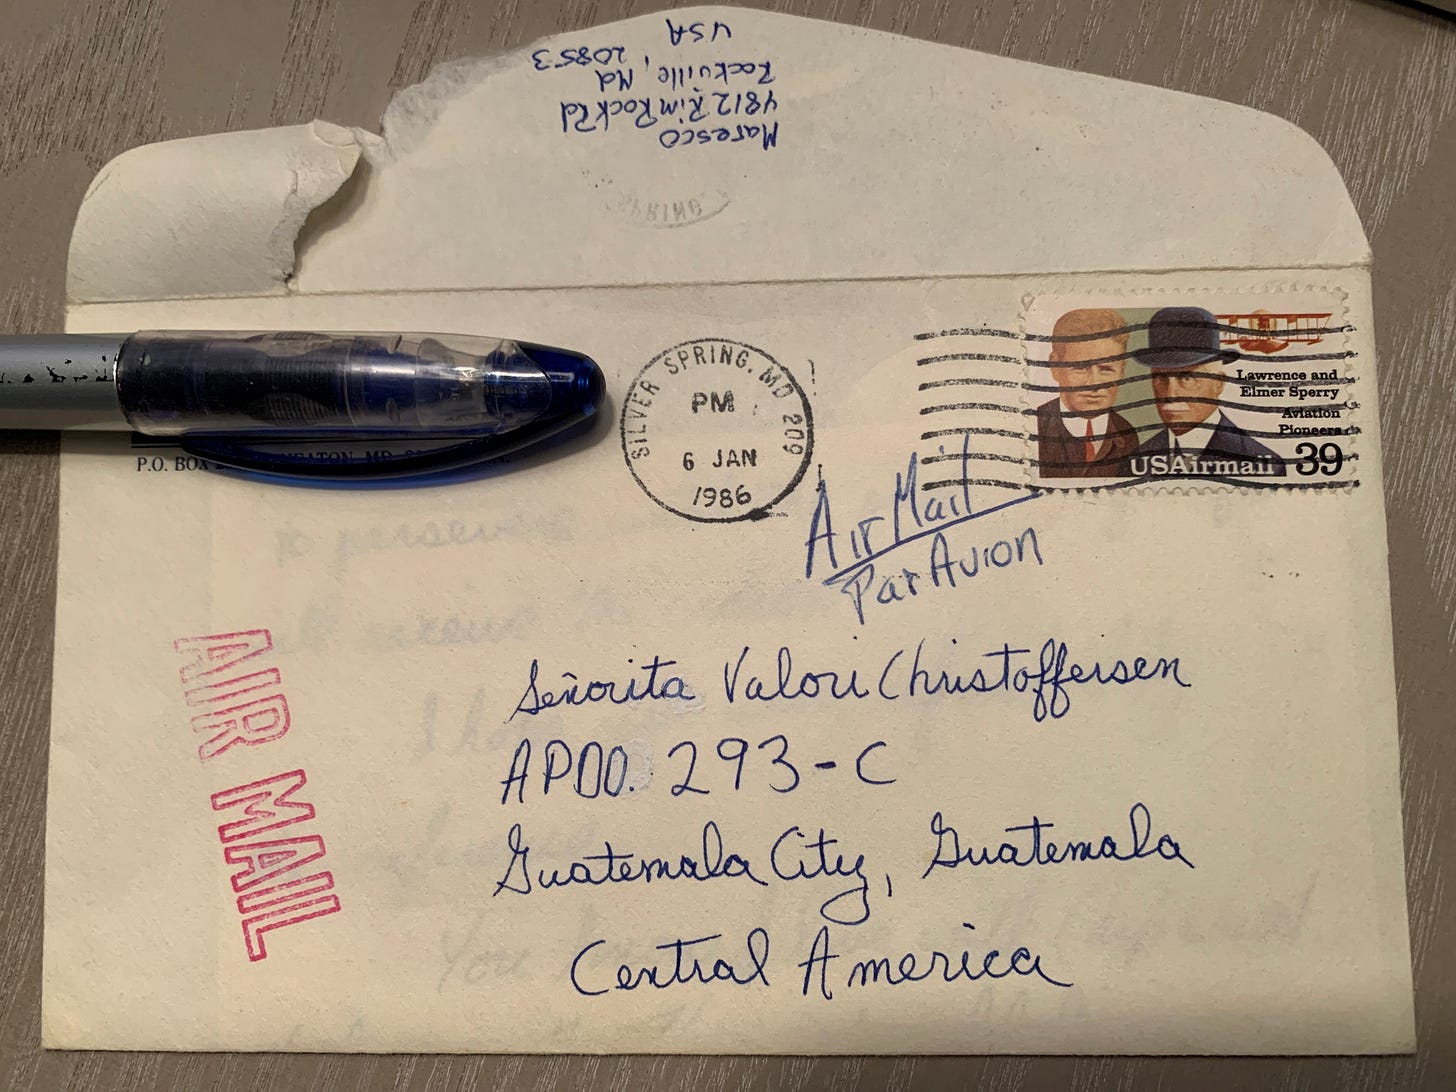 Maresco
4812 Rim Rock Rd
Rockville, Md
20853
USA
SILVER SPRING, MD 209
PM
6 JAN
1986
Lawrence and
Elmer Sperry
Aviation
Pioneers
USAirmail 39
P.O. BOX
MD
Air Mail
Par Avion
AIR MAIL
Señorita Valori Christoffersen
APDO. 293-C
Guatemala City, Guatemala
Central America